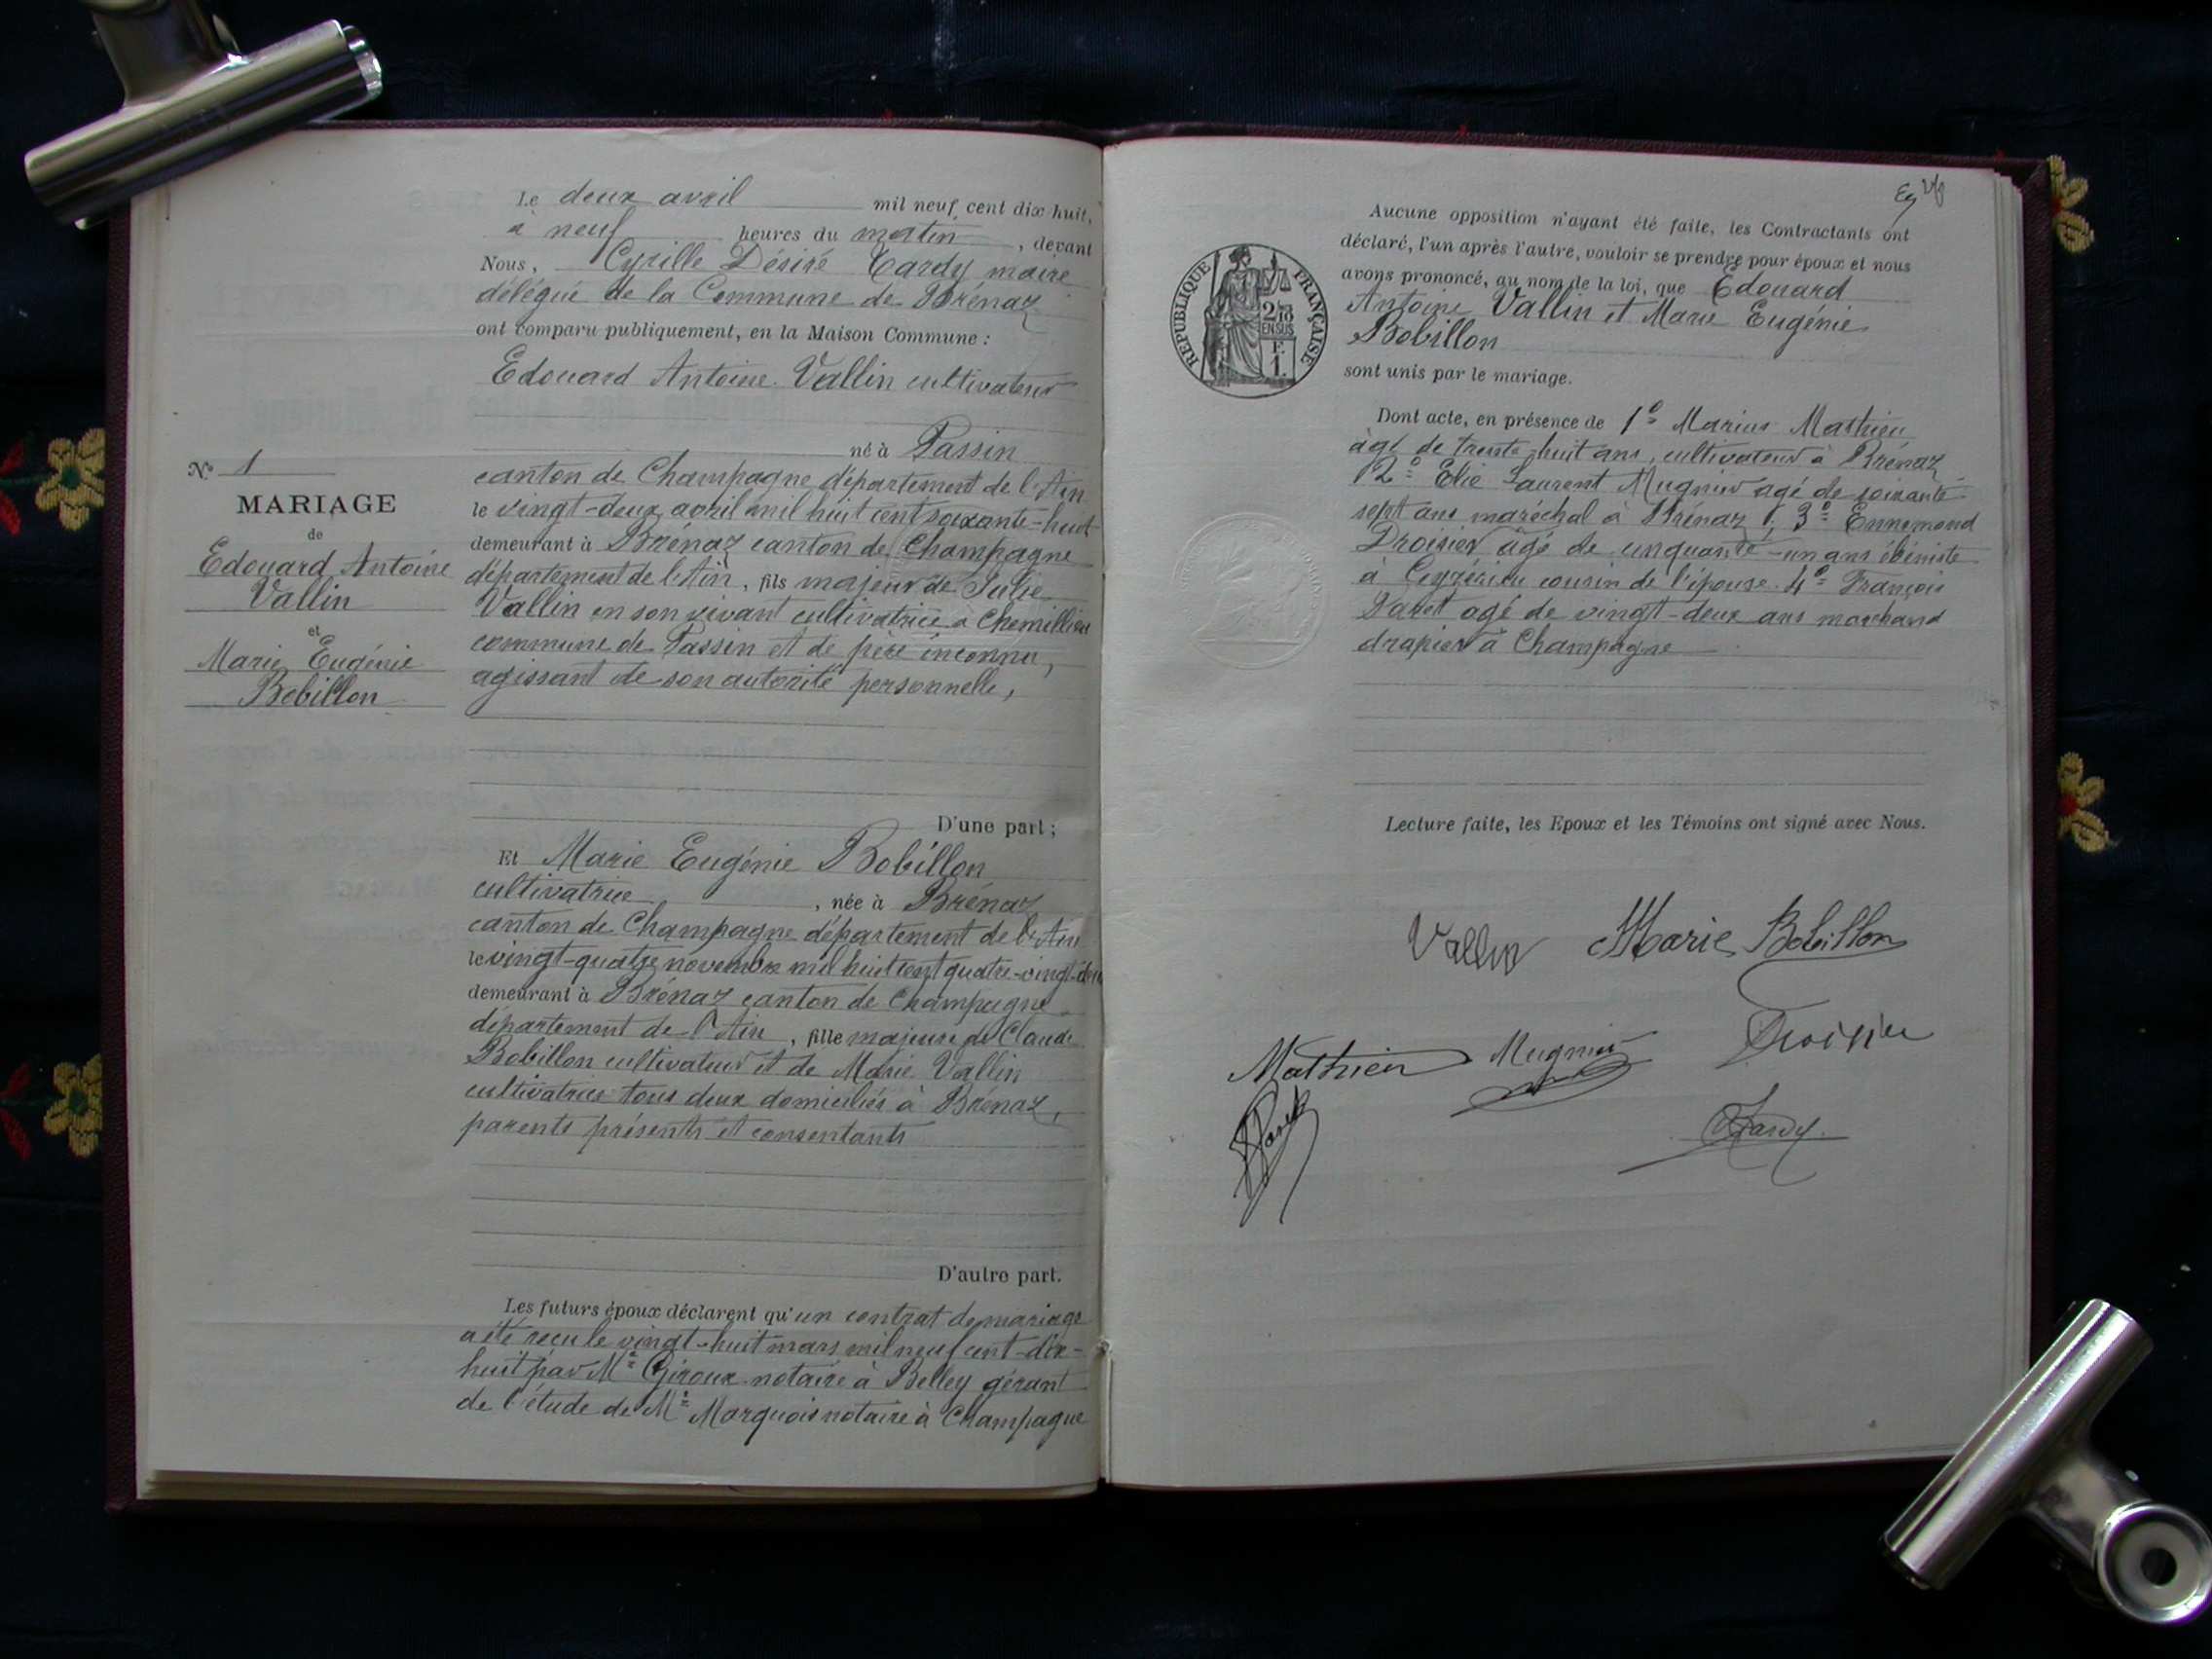 Le deux avril mil neuf cent dix huit,
à neuf heures du matin, devant
Nous, Cyrille Désiré Tardy maire
délégué de la Commune de Brénaz
ont comparu publiquement, en la Maison Commune :
Edouard Antoine Vallin cultivateur
né à Passin
canton de Champagne département de l'Ain
le vingt-deux avril mil huit cent soixante-huit
demeurant à Brénaz canton de Champagne
département de l'Ain, fils majeur de Julie
Vallin en son vivant cultivatrice à Chemillieu
commune de Passin et de père inconnu,
agissant de son autorité personnelle,
D'une part ;
N° 1
MARIAGE
de
Edouard Antoine
Vallin
et
Marie Eugénie
Bobillon
Et Marie Eugénie Bobillon
cultivatrice, née à Brénaz
canton de Champagne département de l'Ain
le vingt-quatre novembre mil huit cent quatre-vingt-deux
demeurant à Brénaz canton de Champagne
département de l'Ain, fille majeure de Claude
Bobillon cultivateur et de Marie Vallin
cultivatrice tous deux domiciliés à Brénaz,
parents présents et consentants
D'autre part.
Les futurs époux déclarent qu'un contrat de mariage
a été reçu le vingt-huit mars mil neuf cent-dix-
huit par Me Giroux notaire à Belley gérant
de l'étude de Me Marquois notaire à Champagne
Aucune opposition n'ayant été faite, les Contractants ont
déclaré, l'un après l'autre, vouloir se prendre pour époux et nous
avons prononcé, au nom de la loi, que Edouard
Antoine Vallin et Marie Eugénie
Bobillon
sont unis par le mariage.
RÉPUBLIQUE FRANÇAISE
2/10
EN SUS
F.
1.
Dont acte, en présence de 1° Marius Mathieu
âgé de trente-huit ans, cultivateur à Brénaz
2° Elie Laurent Mugnier agé de soixante
sept ans maréchal à Brénaz, 3° Ennemond
Droisier âgé de cinquante-un ans ébéniste
à Ceyzérieu cousin de l'épouse. 4° François
agé de vingt-deux ans marchand
drapier à Champagne
Lecture faite, les Epoux et les Témoins ont signé avec Nous.
Vallin Marie Bobillon
Mathieu Mugnier Droisier
Tardy